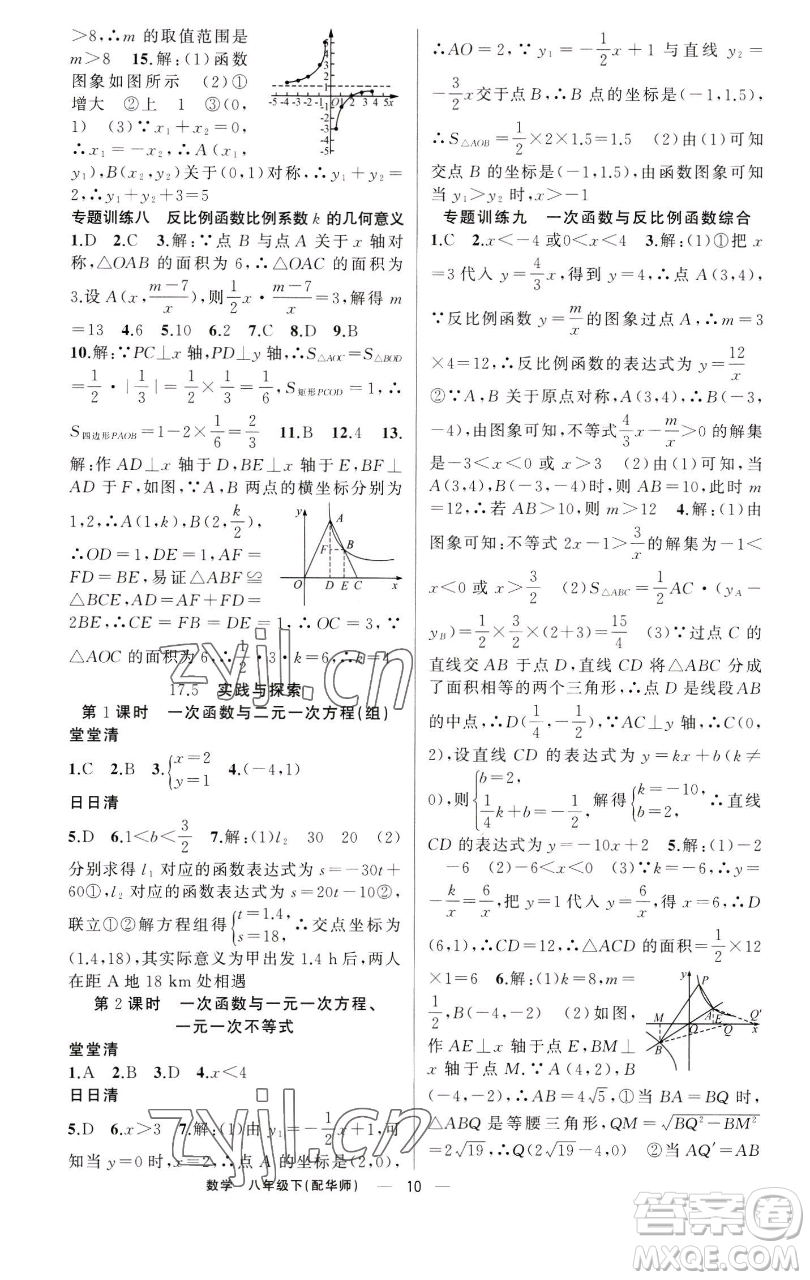 >8,∴m 的取值范围是
m>8 15.解:(1)函数
图象如图所示 (2)①
增大 ②上 1 ③(0,
1) (3)∵x₁+x₂=0,
∴x₁=-x₂,∴A(x₁,
y₁),B(x₂,y₂)关于(0,1)对称,∴y₁+y₂=
2,∴y₁+y₂+3=5
专题训练八 反比例函数比例系数 k 的几何意义
1.D 2.C 3.解:∵点 B 与点 A 关于 x 轴对
称,△OAB 的面积为 6,∴△OAC 的面积为
3.设 A(x,(m-7)/x),则 1/2 x·(m-7)/x=3,解得 m
=13 4.6 5.10 6.2 7.C 8.D 9.B
10.解:∵PC⊥x 轴,PD⊥y 轴,∴S△AOC=S△BOD
=1/2·|1/3|=1/2×1/3=1/6,S矩形PCOD=1,∴
S四边形PAOB=1-2×1/6=2/3 11.B 12.4 13.
解:作 AD⊥x 轴于 D,BE⊥x 轴于 E,BF⊥
AD 于 F,如图,∵A,B 两点的横坐标分别为
1,2,∴A(1,k),B(2,k/2),
∴OD=1,DE=1,AF=
FD=BE,易证△ABF≌
△BCE,AD=AF+FD=
2BE,∴CE=FB=DE=1,∴OC=3,∵
△AOC 的面积为 6,∴1/2·3·k=6,∴k=4
17.5 实践与探索
第 1 课时 一次函数与二元一次方程(组)
堂堂清
1.C 2.B 3.{x=2 y=1 4.(-4,1)
日日清
5.D 6.1<b<3/2 7.解:(1)l₂ 30 20 (2)
分别求得 l₁ 对应的函数表达式为 s=-30t+
60①,l₂ 对应的函数表达式为 s=20t-10②,
联立①②解方程组得{t=1.4, s=18, ∴交点坐标为
(1.4,18),其实际意义为甲出发 1.4 h 后,两人
在距 A 地 18 km 处相遇
第 2 课时 一次函数与一元一次方程、
一元一次不等式
堂堂清
1.A 2.B 3.D 4.x<4
日日清
5.D 6.x>3 7.解:(1)由 y₁=-1/2 x+1,可
知当 y=0 时,x=2,∴点 A 的坐标是(2,0),
∴AO=2,∵y₁=-1/2 x+1 与直线 y₂=
-3/2 x交于点 B,∴B 点的坐标是(-1,1.5),
∴S△AOB=1/2×2×1.5=1.5 (2)由(1)可知
交点 B 的坐标是(-1,1.5),由函数图象可知
当 y₁>y₂ 时,x>-1
专题训练九 一次函数与反比例函数综合
1.C 2.x<-4 或0<x<4 3.解:(1)①把 x
=3代入 y=4/3 x,得到 y=4,∴点 A(3,4),
∵反比例函数 y=m/x 的图象过点 A,∴m=3
×4=12,∴反比例函数的表达式为 y=12/x
②∵A,B 关于原点对称,A(3,4),∴B(-3,
-4),由图象可知,不等式4/3 x-m/x>0 的解集
是-3<x<0 或 x>3 (2)由图象可知,当
A(3,4),B(-3,-4)时,则 AB=10,此时 m
=12,∴若 AB>10,则 m>12 4.解:(1)由
图象可知:不等式 2x-1>3/x 的解集为-1<
x<0 或 x>3/2 (2)S△ABC=1/2 AC·(yA-
yB)=1/2×3/2×(2+3)=15/4 (3)∵过点 C 的
直线交 AB 于点 D,且将△ABC 分成
了面积相等的两个三角形,∴D是线段 AB
的中点,∴D(1/4,-1/2),∵AC⊥y 轴,∴C(0,
2),设直线 CD 的表达式为 y=kx+b(k≠
0),则{b=2, 1/4 k+b=-1/2, 解得{k=-10, b=2, ∴直线
CD 的表达式为 y=-10x+2 5.解:(1)-2
-6 (2)-6<x<0 (3)∵k=-6,∴y=
-k/x=6/x,把 y=1 代入 y=6/x,得 x=6,∴D
(6,1),∴CD=12,∴△ACD 的面积=1/2×12
×1=6 6.解:(1)k=8,m=
1/2,B(-4,-2) (2)如图,
作 AE⊥x 轴于点 E,BM⊥
x 轴于点 M.∵A(4,2),B
(-4,-2),∴AB=4√5,①当 BA=BQ 时,
△ABQ 是等腰三角形,QM=√(BQ²-BM²)
=2√19,∴OQ=2√19-4 ②当 AQ′=AB
数学 八年级下(配华师) — 10 —
zyjl.cn
zyjl.cn
答案圈
MXQE.COM